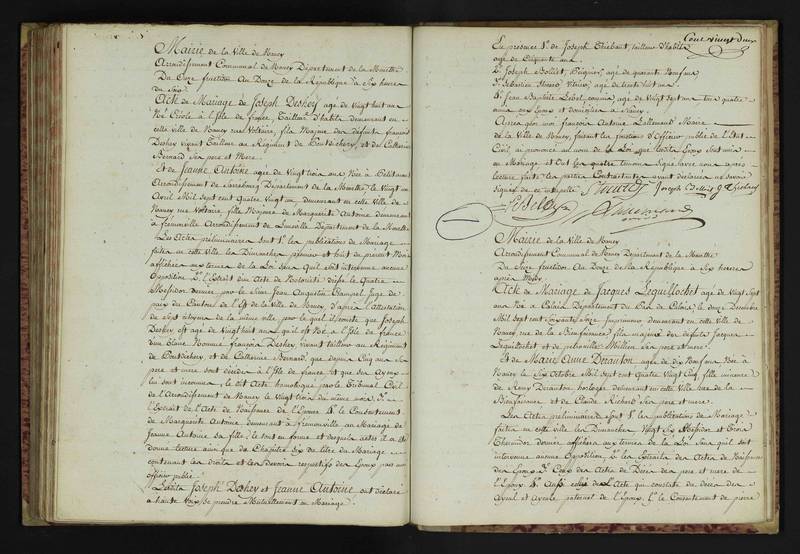 Mairie de la Ville de Nancy
Arrondissement Communal de Nancy Département de la Meurthe
Du Onze fructidor An Douze de la République à Six heures
du Soir
Acte de Mariage de Joseph Deshey agé de vingt huit ans
Né Créole à l'Isle de france, tailleur d'habits demeurant en
cette ville de Nancy rue Voltaire, fils Majeur des defunts françois
Deshey vivant tailleur au Régiment de Pondichery, et de Catherine
Bernard ses pere et Mere.
Et de Jeanne Antoine agée de vingt trois ans Née à
Arrondissement de Sarrebourg Département de la Meurthe le vingt un
Avril Mil sept cent quatre vingt un, demeurant en cette Ville de
Nancy rue Voltaire, fille Majeure de Marguerite Antoine demeurant
à frémonville Arrondissement de Lunéville Département de la Meurthe
Les Actes préliminaires sont 1° les publications de Mariage
faites en cette Ville les Dimanches premier et huit du présent Mois
affichées aux termes de la Loi sans qu'il soit intervenu aucune
Opposition 2° l'Extrait d'un Acte de Notoriété dressé le quatre
Messidor dernier par le Sieur Jean Augustin Champel Juge de
paix du Canton de l'Est de la Ville de Nancy, d'après l'attestation
de sept citoyens de la même ville par lequel il conste que Joseph
Deshey est agé de vingt huit ans, qu'il est Né à l'Isle de france
du françois Deshey, vivant tailleur au Régiment
de Pondichery, et de Catherine Bernard, que depuis Cinq ans ses
pere et mere sont décédés à l'Isle de france, et que ses Ayeux
lui sont inconnus, le dit Acte homologué par le Tribunal Civil
de l'Arrondissement de Nancy le vingt trois du même mois, 3°
l'Extrait de l'Acte de Naissance de l'Epouse 4° le Consentement
de Marguerite Antoine demeurant à fremonville au Mariage de
Jeanne Antoine sa fille; le tout en forme et desquels actes il a été
donné lecture ainsi que du Chapitre Six du titre du Mariage
contenant les droits et les devoirs respectifs des Epoux par nous
officier public
Lesdits Joseph Deshey et Jeanne Antoine ont déclaré
à haute voix se prendre Mutuellement en Mariage
Cent vingt deux
En présence 1° de Joseph Thiebaut, tailleur d'habits
agé de Cinquante ans
2° Joseph Bellist, agé de quarante Neuf ans
3° Sebastien Vitrier, agé de trente huit ans
4° Jean Baptiste Lebel, commis agé de vingt sept ans tous quatre
amis des Epoux et domiciliés à Nancy.
Après quoi moi françois Antoine Lallemand Maire
de la Ville de Nancy, faisant les fonctions d'Officier public de l'Etat
Civil ai prononcé au nom de la Loi que lesdits Epoux sont unis
en Mariage et Ont les quatre témoins signé avec nous après
lecture faite les parties Contractantes ayant déclaré ne savoir
signer de ce interpellés
Joseph Bellist
Lebel
Lallemand
Mairie de la Ville de Nancy
Arrondissement Communal de Nancy Département de la Meurthe
Du Onze fructidor An Douze de la République à Six heures
après Midy
Acte de Mariage de Jacques Lequillochet agé de vingt Sept
ans Né à Calais Département du Pas de Calais, le douze Décembre
Mil sept cent soixante seize Imprimeur demeurant en cette ville de
Nancy rue de la Bienfaisance fils majeur des defunts Jacques
Lequillochet et de Million ses pere et mere.
Et de Marie Anne Dérauton agée de dix Neuf ans Née à
Nancy le six Octobre Mil sept cent quatre vingt Cinq, fille mineure
de Remy Dérauton horloger demeurant en cette Ville rue de la
Bienfaisance et de Claude Richard ses pere et mere.
Les Actes préliminaires sont 1° les publications de Mariage
faites en cette ville les Dimanches vingt six Messidor et trois
Thermidor dernier affichées aux termes de la Loi sans qu'il soit
intervenu aucune Opposition 2° les Extraits des Actes de Naissance
des Epoux 3° Ceux des Actes de Décès des pere et mere de
l'Epoux 4° Aussi celui de l'Acte qui constate le décès des
Ayeul et Ayeule paternel de l'Epoux 5° le Consentement de pierre